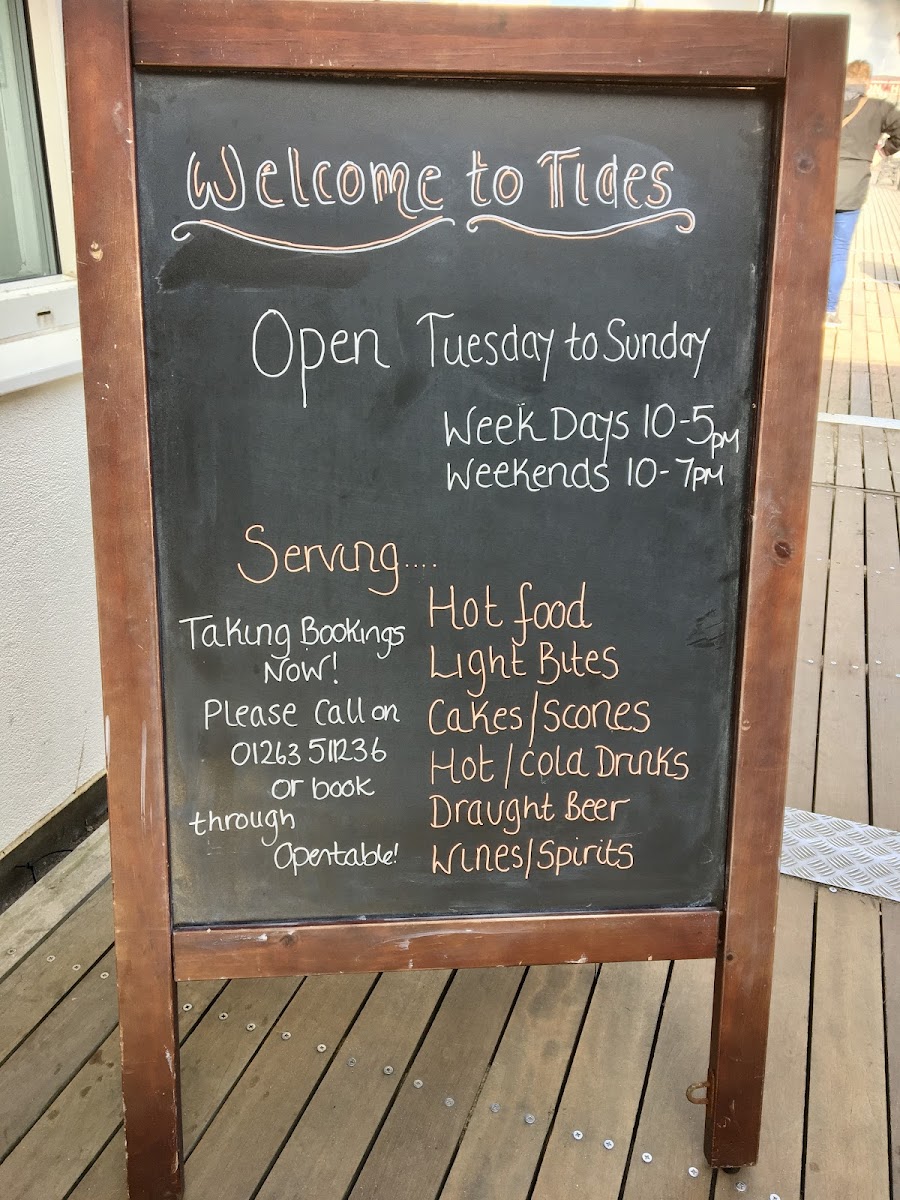 Welcome to Tides
Open Tuesday to Sunday
Week Days 10-5pm
Weekends 10-7pm
Serving....
Taking Bookings
Now!
Please Call on
01263 511236
or book
through
Opentable!
Hot food
Light Bites
Cakes/Scones
Hot/Cold Drinks
Draught Beer
Wines/Spirits